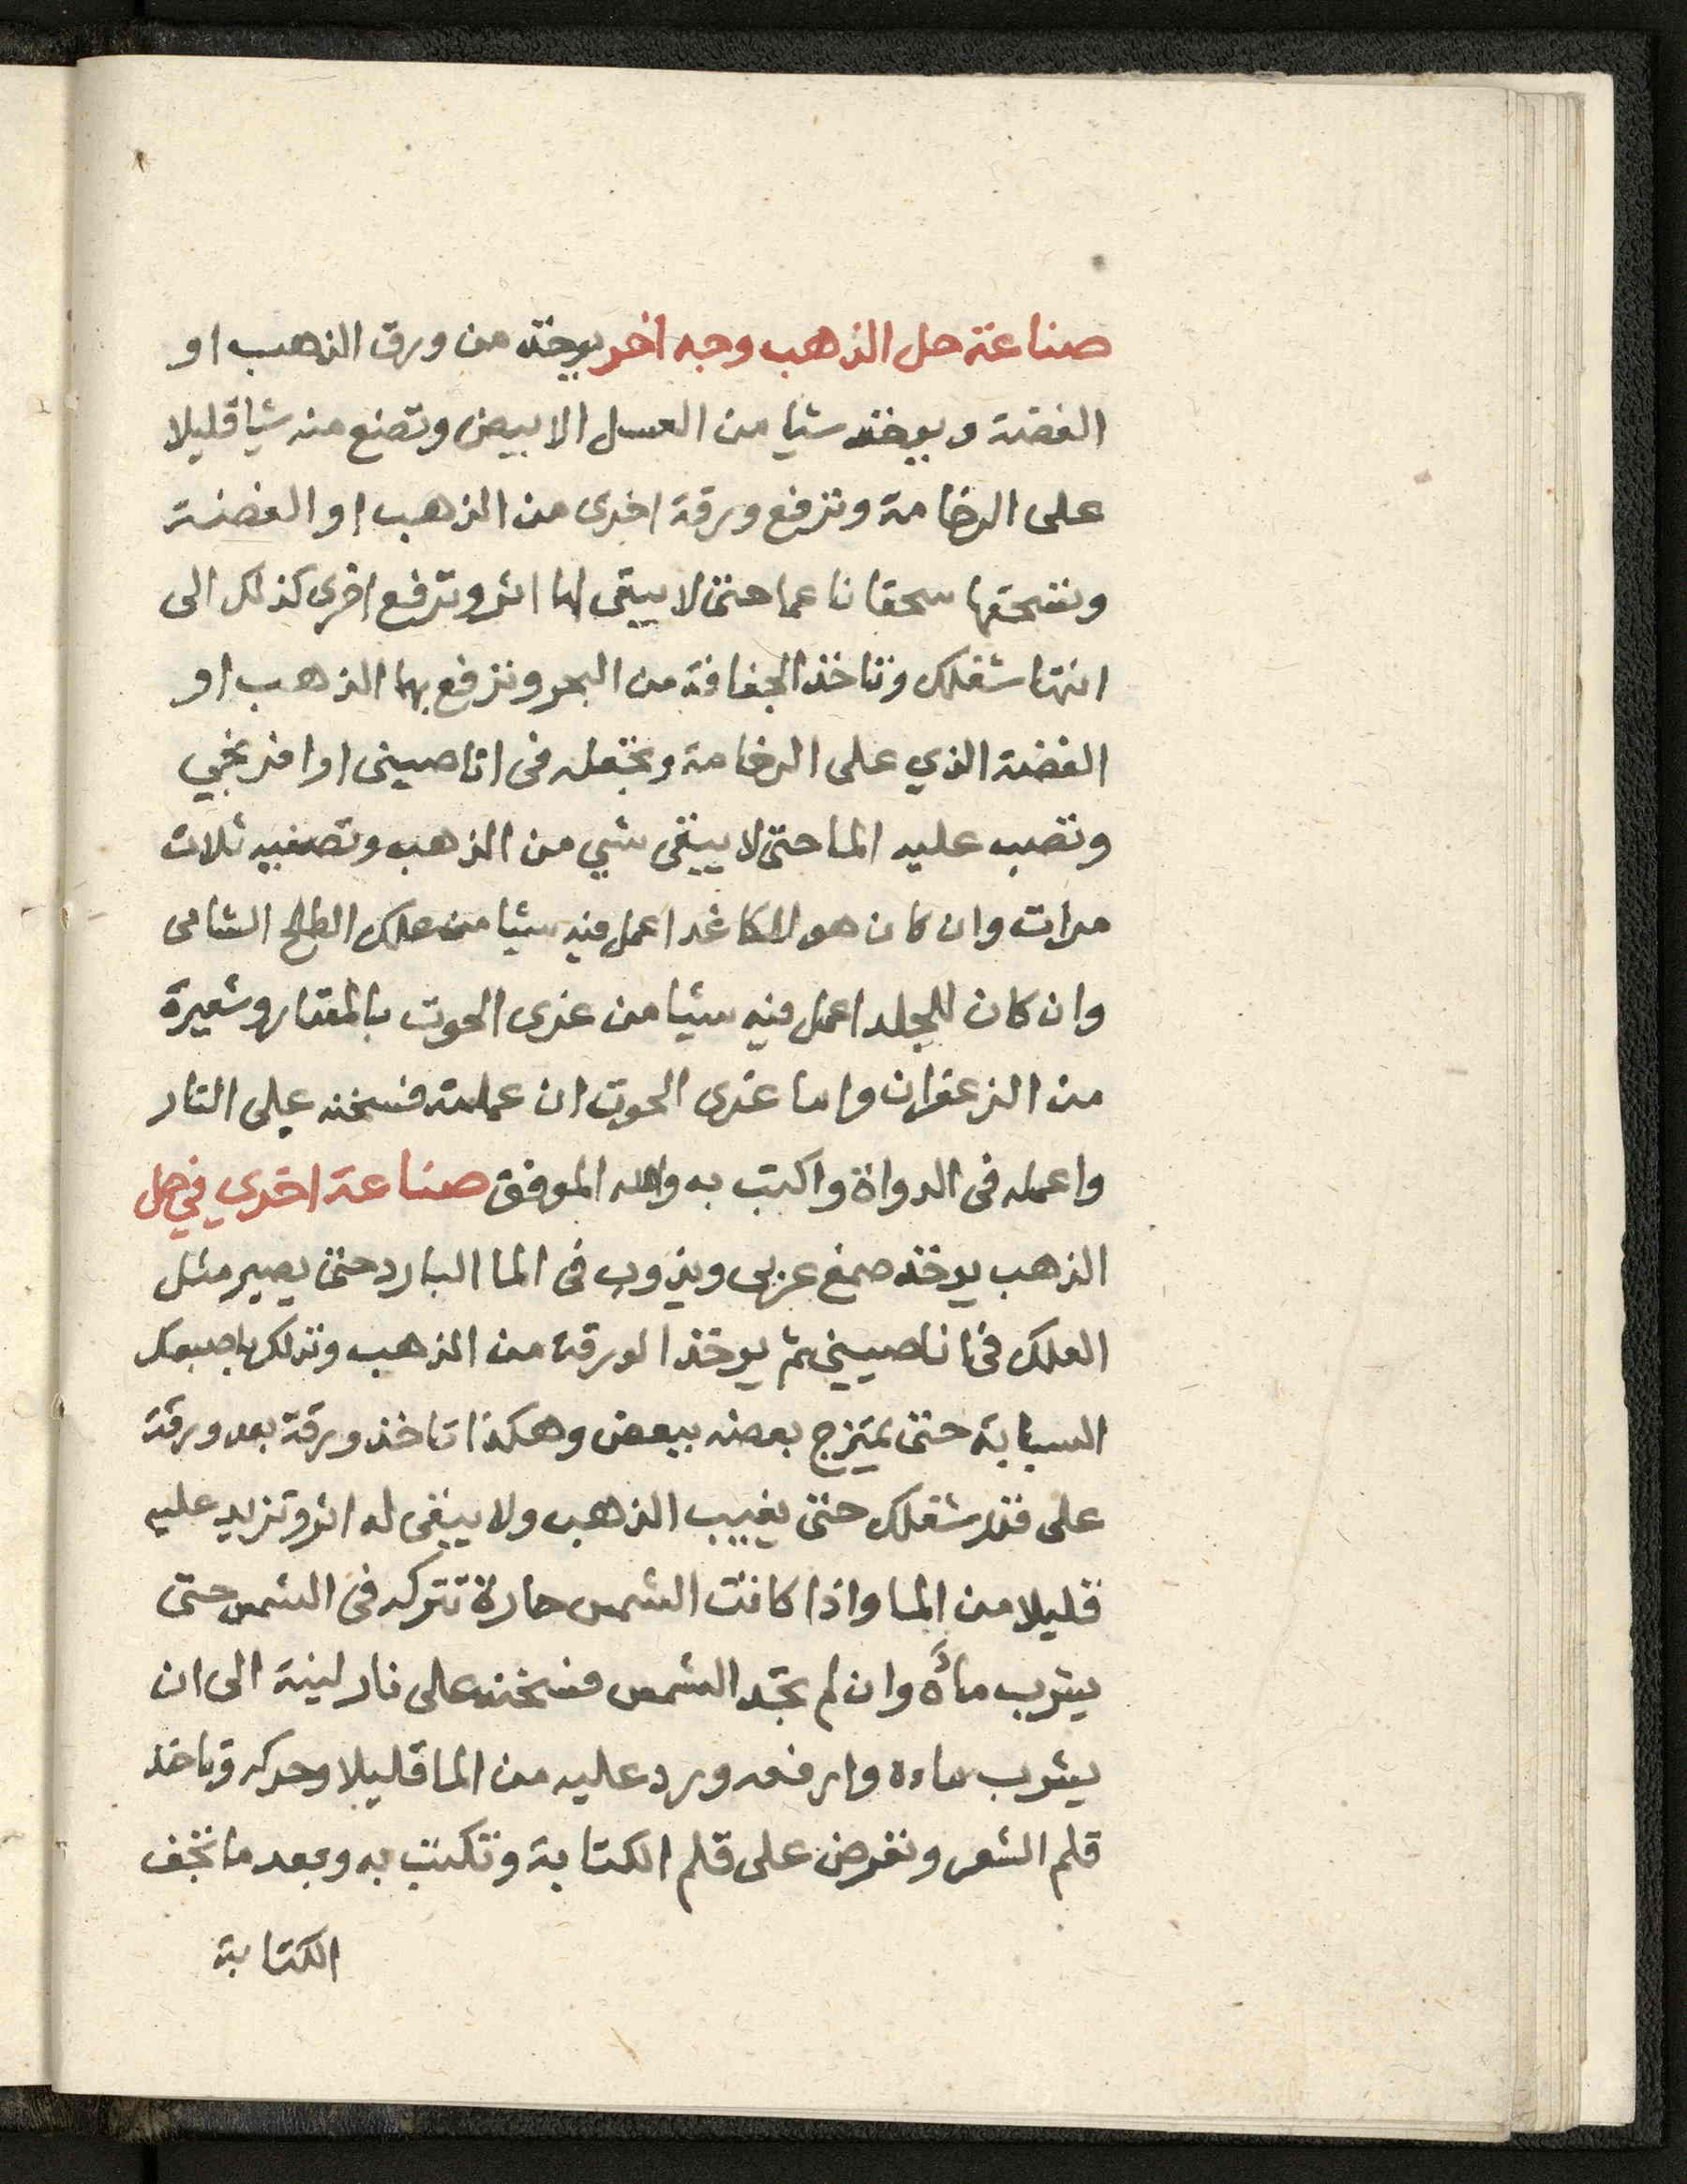 صناعة حل الذهب وجه اخر يوخذ من ورق الذهب او
الفضة ويوخذ شيا من العسل الابيض وتضع منه شيا قليلا
على الرخامة وترفع ورقة اخرى من الذهب او الفضة
وتسحقها سحقا ناعما حتى لا يبقى لها اثر وترفع اخرى كذلك الى
انتها شغلك وتاخذ الجفافة من البحر وترفع بها الذهب او
الفضة الذي على الرخامة وتجعله فى انا صينى او افرنجي
وتصب عليه الما حتى لا يبقى شي من الذهب وتصفيه ثلاث
مرات وان كان هو للكاغد اعمل فيه شيا من علك الطلح الشامى
وان كان للجلد اعمل فيه شيا من غرى الحوت بالمقدار وشعيرة
من الزعفران واما غرى الحوت ان عملته فسخنه على النار
واعمله فى الدواة واكتب به والله الموفق صناعة اخري في حل
الذهب يوخذ صمغ عربى ويذوب فى الما البارد حتى يصير مثل
العلك فى انا صيني ثم يوخذ الورقة من الذهب وتدلكها باصبعك
السبابة حتى يمتزج بعضه ببعض وهكذا تاخذ ورقة بعد ورقة
على قدر شغلك حتى يغيب الذهب ولا يبقى له اثر وتزيد عليه
قليلا من الما واذا كانت الشمس حارة تتركه فى الشمس حتى
يشرب ماؤه وان لم تجد الشمس فسخنه على نار لينة الى ان
يشرب ماءه وارفعه ورد عليه من الما قليلا وحركه وتاخذ
قلم الشعر وتفرض على قلم الكتابة وتكتب به وبعد ما تجف
الكتابة